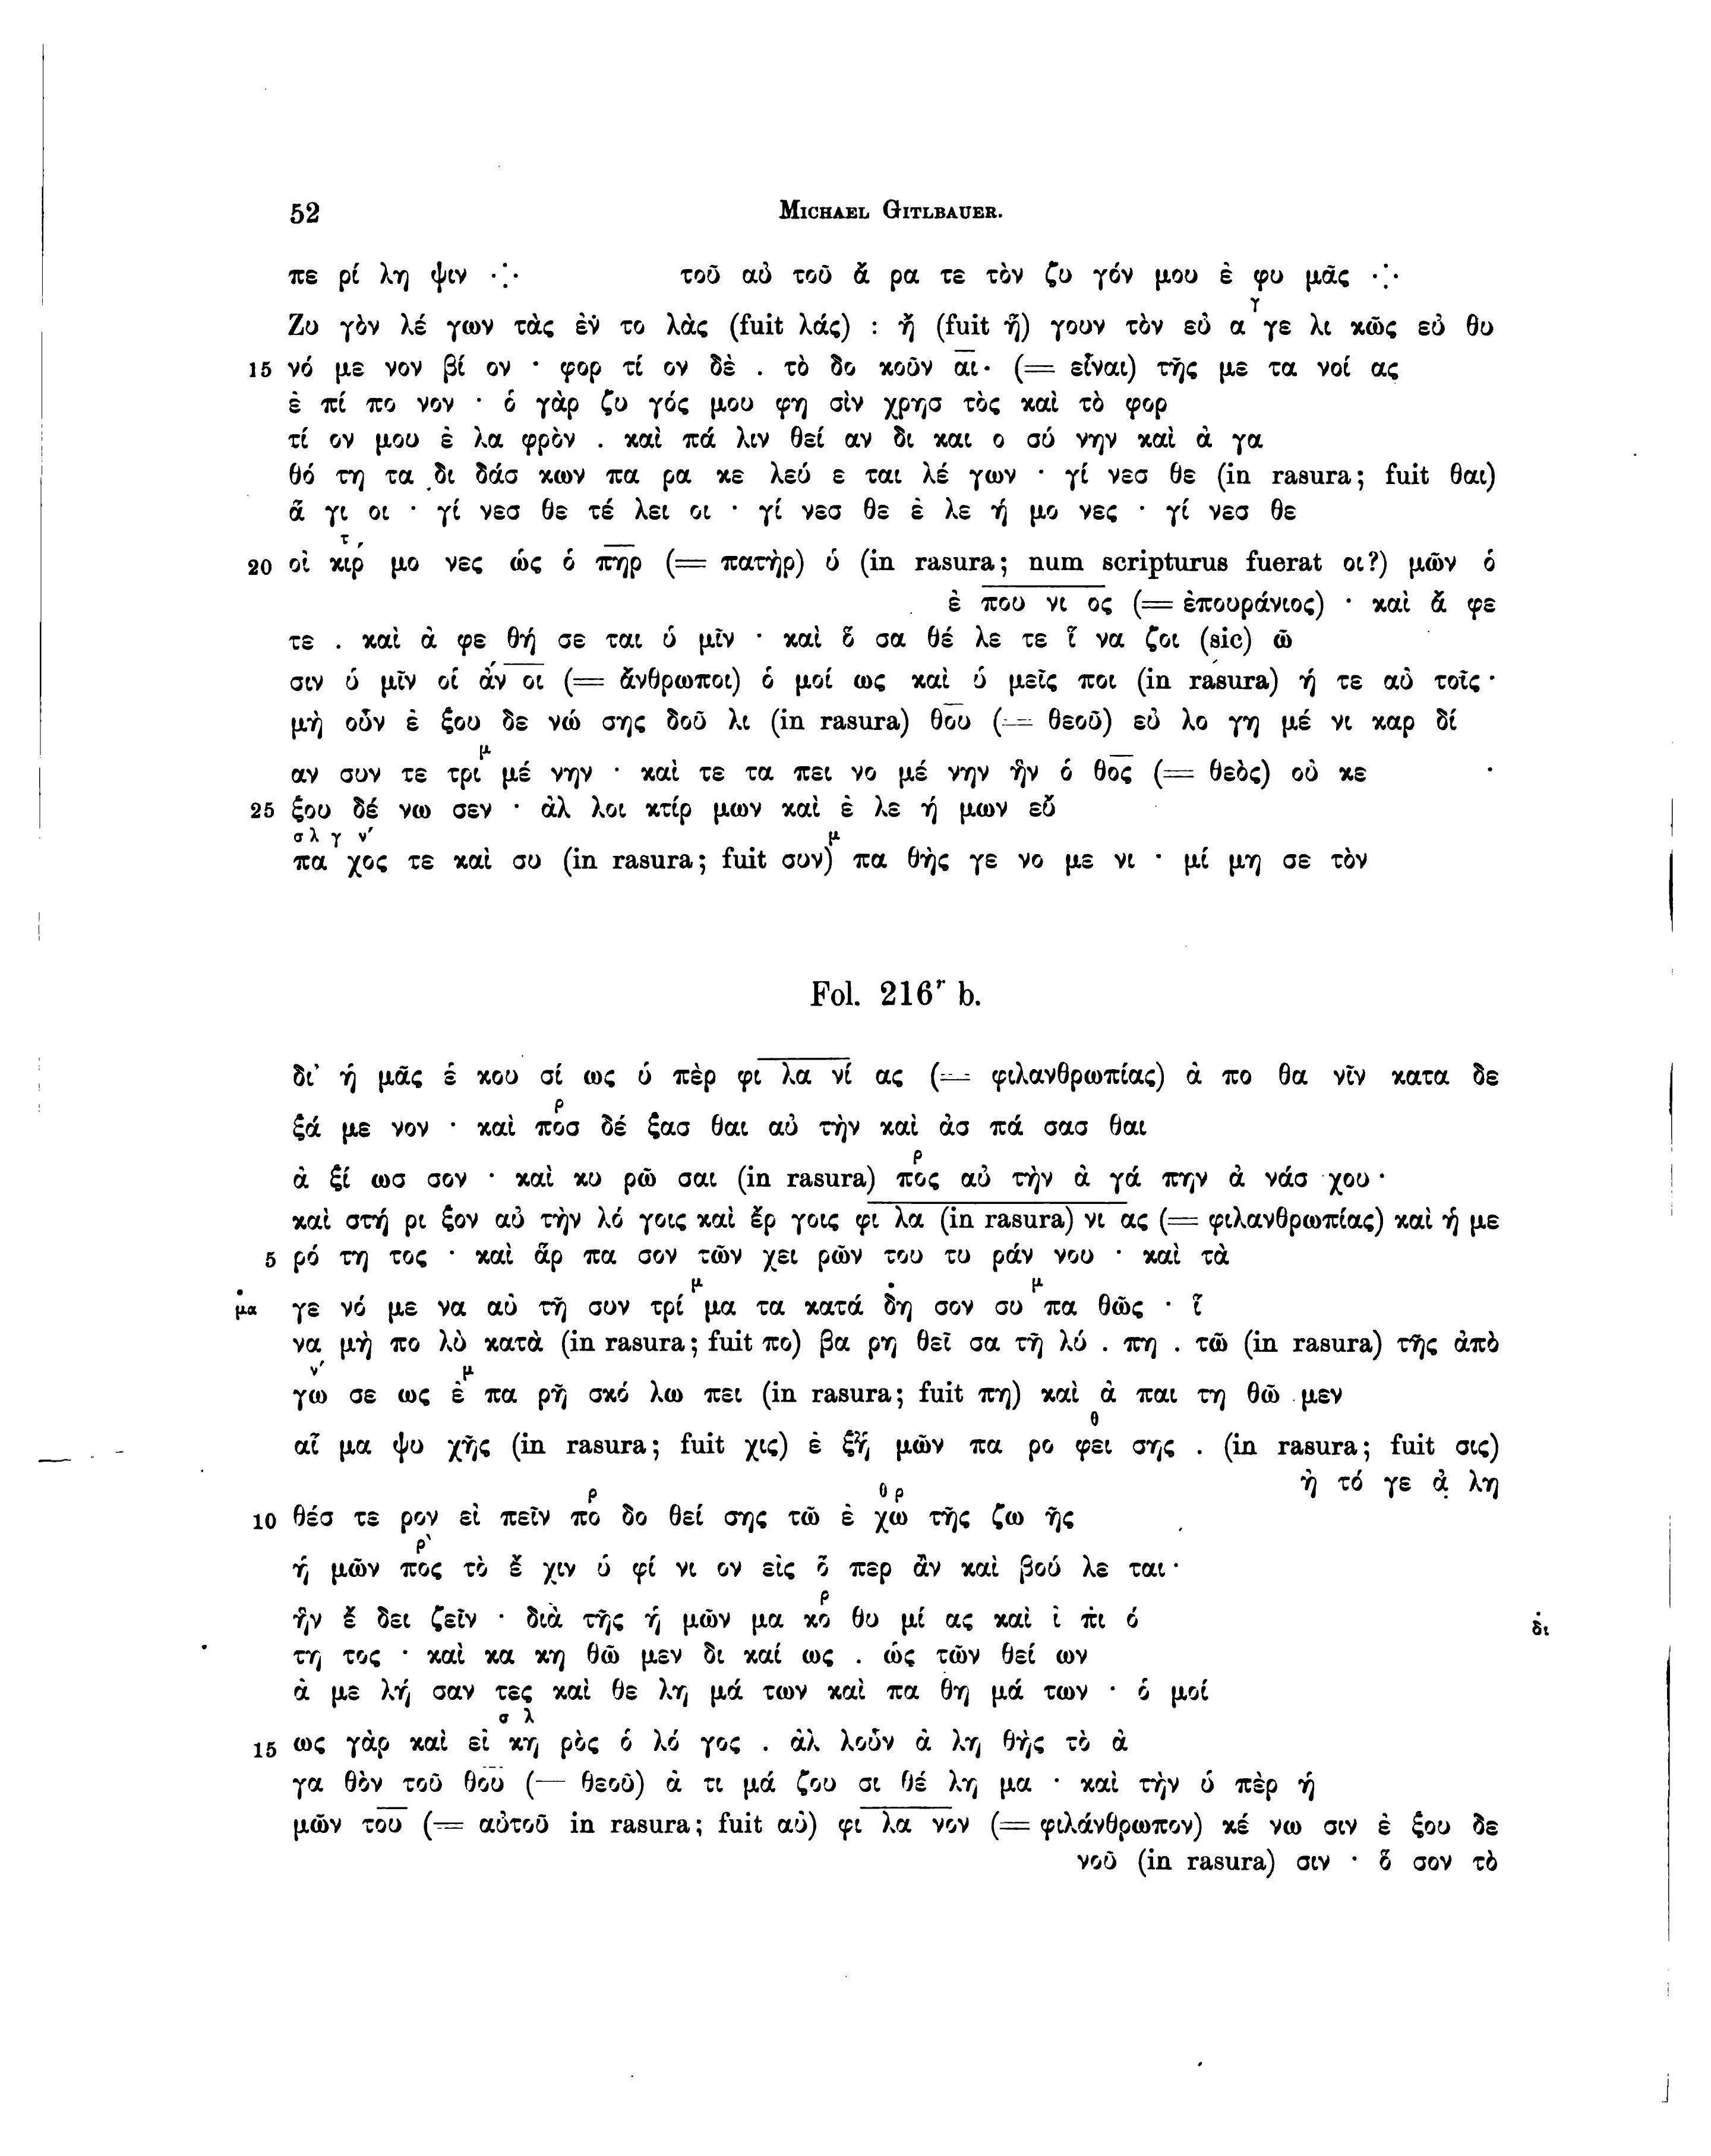 52 MICHAEL GITLBAUER.
πε ρί λη ψιν ·:· τοῦ αὐ τοῦ ἄ ρα τε τὸν ζυ γόν μου ἐ φυ μᾶς ·:·
γ
Ζυ γὸν λέ γων τὰς ἐν το λὰς (fuit λάς) : ἤ (fuit ἦ) γουν τὸν εὐ α γε λι κῶς εὐ θυ
15 νό με νον βί ον · φορ τί ον δὲ . τὸ δο κοῦν αι· (= εἶναι) τῆς με τα νοί ας
ἐ πί πο νον · ὁ γὰρ ζυ γός μου φη σὶν χρησ τὸς καὶ τὸ φορ
τί ον μου ἐ λα φρὸν . καὶ πά λιν θεί αν δι και ο σύ νην καὶ ἀ γα
θό τη τα δι δάσ κων πα ρα κε λεύ ε ται λέ γων · γί νεσ θε (in rasura; fuit θαι)
ἅ γι οι · γί νεσ θε τέ λει οι · γί νεσ θε ἐ λε ή μο νες · γί νεσ θε
τ ,
20 οἰ κιρ μο νες ὡς ὁ πηρ (= πατὴρ) ὑ (in rasura; num scripturus fuerat οι?) μῶν ὁ
ἐ που νι ος (= ἐπουράνιος) · καὶ ἄ φε
τε . καὶ ἀ φε θή σε ται ὑ μῖν · καὶ ὅ σα θέ λε τε ἵ να ζοι (sic) ῶ
σιν ὑ μῖν οἱ ἄν οι (= ἄνθρωποι) ὁ μοί ως καὶ ὑ μεῖς ποι (in rasura) ή τε αὐ τοῖς·
μὴ οὖν ἐ ξου δε νώ σης δοῦ λι (in rasura) θου (= θεοῦ) εὐ λο γη μέ νι καρ δί
μ
αν συν τε τρι μέ νην · καὶ τε τα πει νο μέ νην ἣν ὁ θος (= θεὸς) οὐ κε ·
25 ξου δέ νω σεν · ἀλ λοι κτίρ μων καὶ ἐ λε ή μων εὔ
σ λ γ ν′ μ
πα χος τε καὶ συ (in rasura; fuit συν) πα θὴς γε νο με νι · μί μη σε τὸν
Fol. 216r b.
δι' ἡ μᾶς ἑ κου σί ως ὑ πὲρ φι λα νί ας (= φιλανθρωπίας) ἀ πο θα νῖν κατα δε
ρ
ξά με νον · καὶ πὸσ δέ ξασ θαι αὐ τὴν καὶ ἀσ πά σασ θαι
ρ
ἀ ξί ωσ σον · καὶ κυ ρῶ σαι (in rasura) πὸς αὐ τὴν ἀ γά πην ἀ νάσ χου·
καὶ στή ρι ξον αὐ τὴν λό γοις καὶ ἔρ γοις φι λα (in rasura) νι ας (= φιλανθρωπίας) καὶ ἡ με
5 ρό τη τος · καὶ ἅρ πα σον τῶν χει ρῶν του τυ ράν νου · καὶ τὰ
μ · μ
μα γε νό με να αὐ τῆ συν τρί μα τα κατά δη σον συ πα θῶς · ἵ
να μὴ πο λὺ κατὰ (in rasura; fuit πο) βα ρη θεῖ σα τῆ λύ . πη . τῶ (in rasura) τῆς ἀπὸ
ν′ μ
γω σε ως ἐ πα ρῆ σκό λω πει (in rasura; fuit πη) καὶ ἀ παι τη θῶ μεν
θ
αἷ μα ψυ χῆς (in rasura; fuit χις) ἐ ξἡ μῶν πα ρο φει σης . (in rasura; fuit σις)
ἢ τό γε ἀ λη
ρ θ ρ
10 θέσ τε ρον εἰ πεῖν πο δο θεί σης τῶ ἐ χω τῆς ζω ῆς
ρ`
ἡ μῶν πος τὸ ἔ χιν ὑ φί νι ον εἰς ὅ περ ἂν καὶ βού λε ται·
ρ
ἣν ἔ δει ζεῖν · διὰ τῆς ἡ μῶν μα κο θυ μί ας καὶ ἰ πι ό δι
τη τος · καὶ κα κη θῶ μεν δι καί ως . ὡς τῶν θεί ων
ἀ με λή σαν τες καὶ θε λη μά των καὶ πα θη μά των · ὁ μοί
σ λ
15 ως γὰρ καὶ εἰ κη ρὸς ὁ λό γος . ἀλ λοῦν ἀ λη θὴς τὸ ἀ
γα θὸν τοῦ θοῦ (= θεοῦ) ἀ τι μά ζου σι θέ λη μα · καὶ τὴν ὑ πὲρ ἡ
μῶν του (= αὐτοῦ in rasura; fuit αὐ) φι λα νον (= φιλάνθρωπον) κέ νω σιν ἐ ξου δε
νοῦ (in rasura) σιν · ὅ σον τὸ